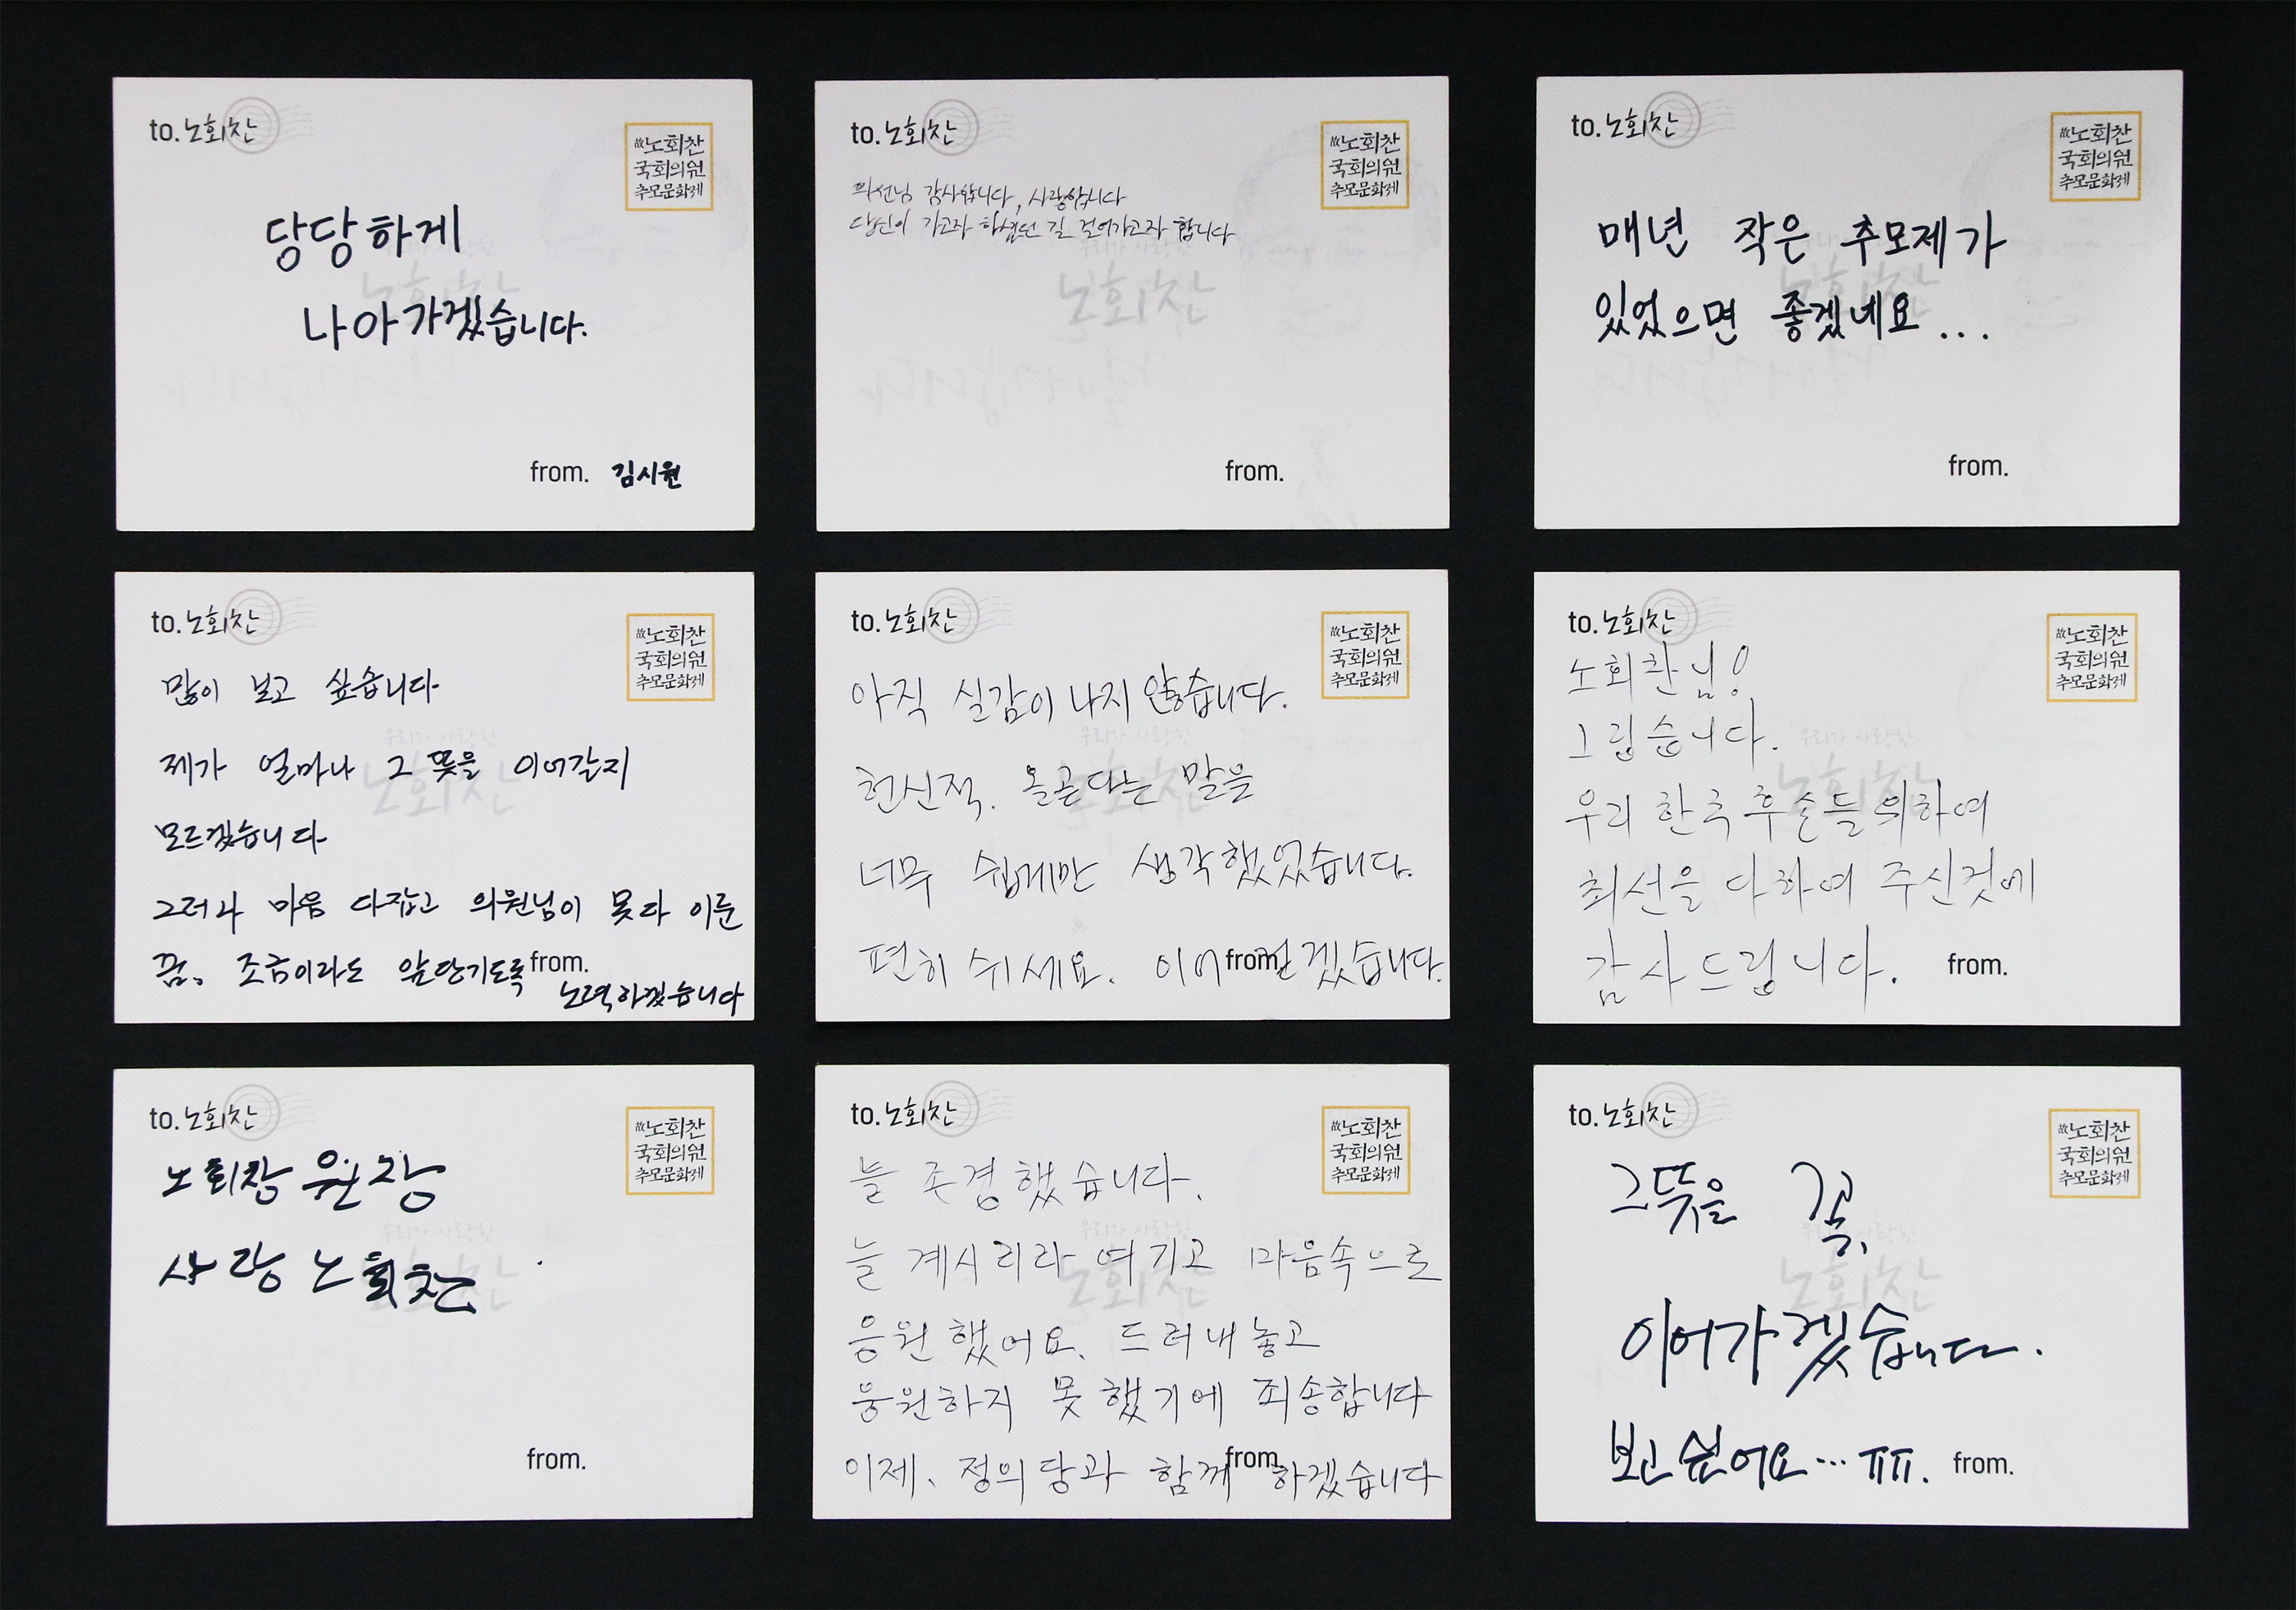 to. 노회찬
故노회찬
국회의원
추모문화제
당당하게
나아가겠습니다.
from. 김시원
to. 노회찬
故노회찬
국회의원
추모문화제
의원님 감사합니다, 사랑합니다
당신이 가고자 하셨던 길 걸어가고자 합니다
우리가 사랑한
노회찬
from.
to. 노회찬
故노회찬
국회의원
추모문화제
매년 작은 추모제가
있었으면 좋겠네요...
노회찬
from.
to. 노회찬
故노회찬
국회의원
추모문화제
많이 보고 싶습니다
제가 얼마나 그 뜻을 이어갈지
우리가 사랑한
노회찬
모르겠습니다
그러나 마음 다잡고 의원님이 못다 이룬
꿈. 조금이라도 앞당기도록
from.
노력하겠습니다
to. 노회찬
故노회찬
국회의원
추모문화제
아직 실감이 나지 않습니다.
헌신적. 올곧다는 말을
너무 쉽게만 생각했었습니다.
편히 쉬세요. 이어 걷겠습니다.
from.
to. 노회찬
故노회찬
국회의원
추모문화제
노회찬님!
그립습니다.
우리가 사랑한
노회찬
우리 한국후손들 위하여
최선을 다하여 주신것에
감사드립니다.
from.
to. 노회찬
故노회찬
국회의원
추모문화제
노회찬 원장
우리가 사랑한
노회찬
사랑 노회찬
from.
to. 노회찬
故노회찬
국회의원
추모문화제
늘 존경했습니다.
우리가 사랑한
노회찬
늘 계시리라 여기고 마음속으로
응원했어요. 드러내놓고
응원하지 못했기에 죄송합니다
이제, 정의당과 함께 하겠습니다
from.
to. 노회찬
故노회찬
국회의원
추모문화제
그뜻을 꼭,
우리가 사랑한
노회찬
이어가겠습니다.
보고싶어요... ㅠㅠ.
from.